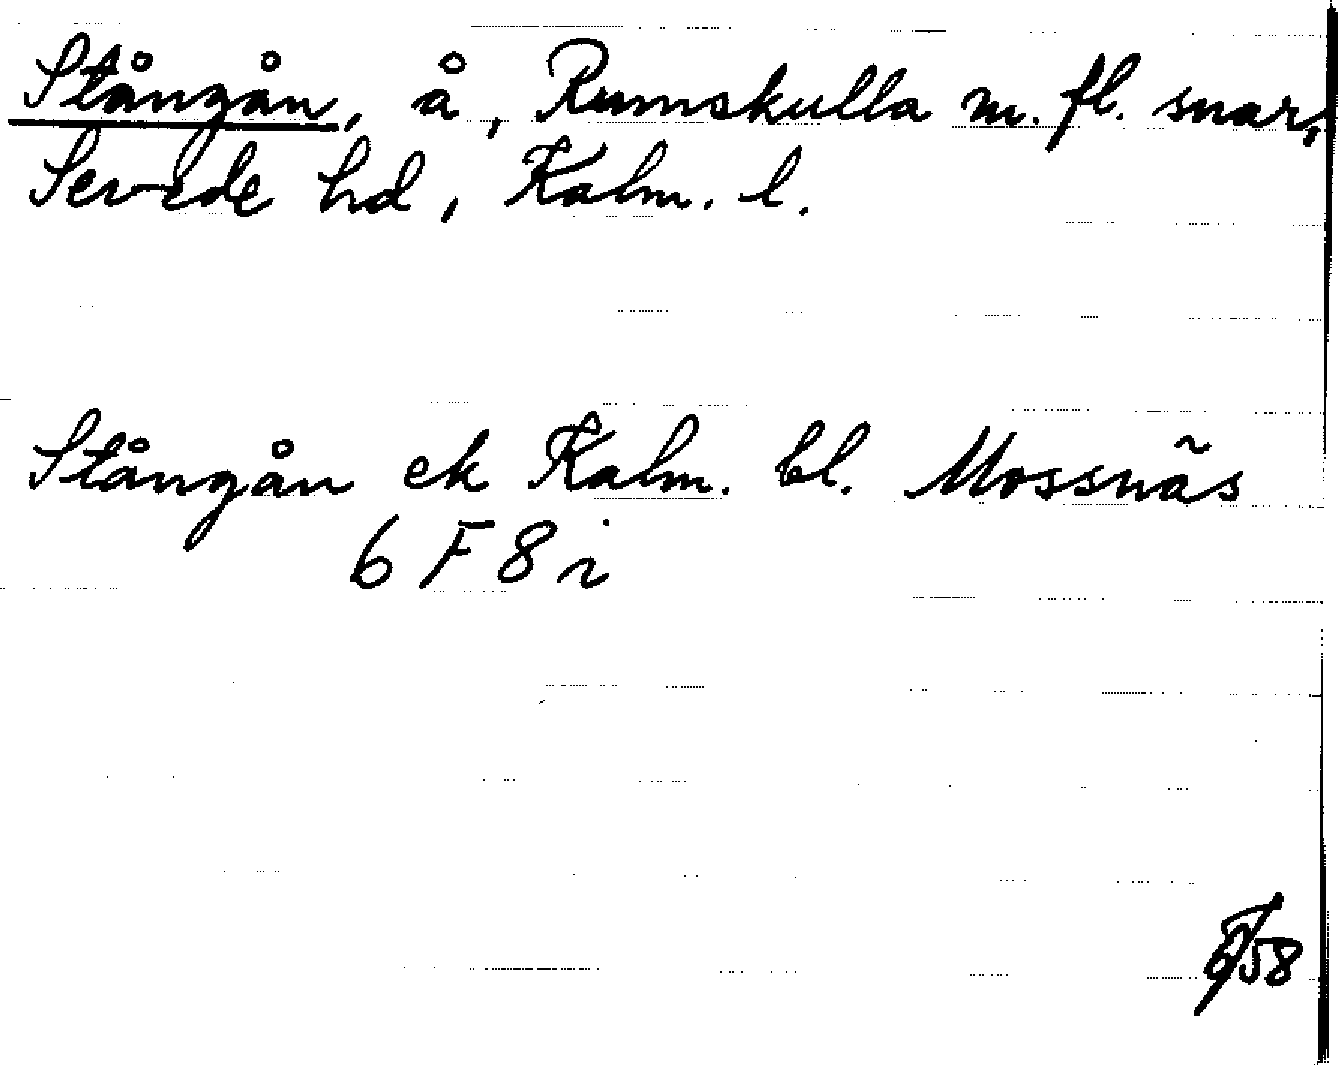 Stångån, å, Rumskulla m. fl. snar,
Sevede hd, Kalm. l.
Stångån ek Kalm. bl. Mossnäs
6 F 8 i
58